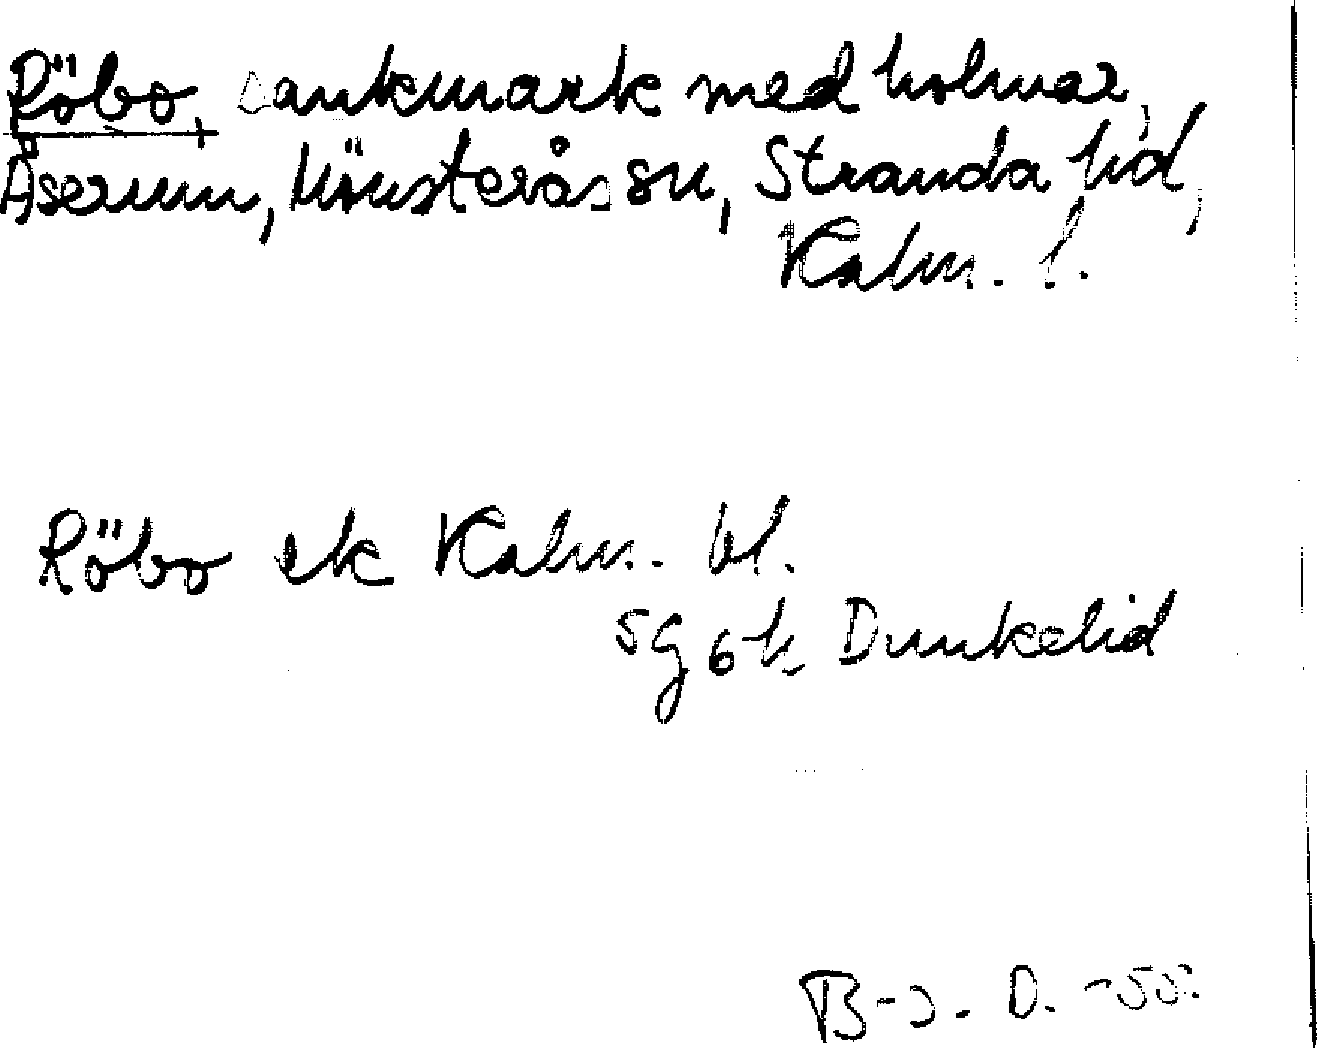 Röbo, sankmark med holmar,
Åserum, Mönsterås sn, Stranda hd,
Kalm. l.
Röbo ek Kalm. bl.
5g 6h Dunkelid
B-J. D. -55